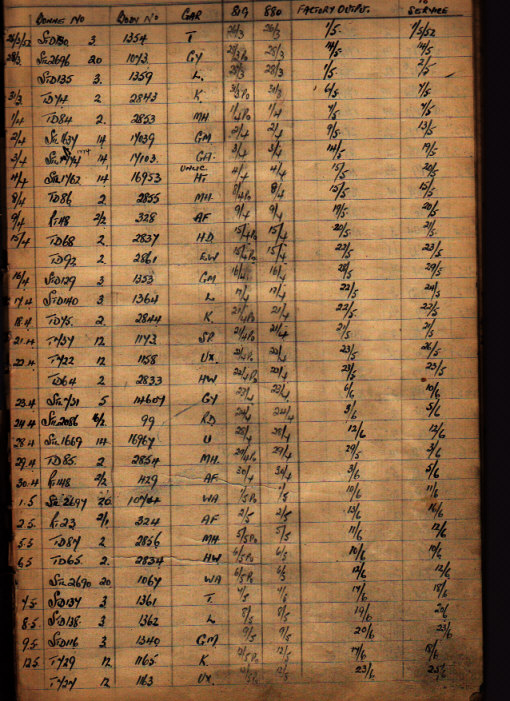 BONNET NO BODY NO GAR 819 880 FACTORY OUTPUT. TO SERVICE
26/3/52 STD130 3 1354 T 26/3 26/3 1/5 1/5/52
28/3 STL2696 20 1073 GY 28/3Po 28/3 14/5 14/5
STD135 3 1359 L 28/3 28/3 1/5 2/5
31/3 TD74 2 2843 K 31/3Po 31/3 6/5 7/5
1/4 TD84 2 2853 MH 1/4Po 1/4 7/5 7/5
2/4 14 17039 GM 2/4 2/4 9/5 13/5
3/4 14 17103 3/4 3/4 14/5 19/5
4/4 STL1762 14 16953 HT 4/4 4/4 15/5 20/5
8/4 TD86 2 2855 MH 8/4Po 8/4 15/5 15/5
9/4 RT48 2/2 328 AF 9/4 9/4 19/5 20/5
15/4 TD68 2 2837 HD 15/4Po 15/4 20/5 21/5
TD92 2 2861 EW 15/4Po 15/4 22/5 23/5
16/4 STD129 3 1353 GM 16/4 16/4 28/5 29/5
17.4 STD140 3 1364 L 17/4 17/4 22/5 24/5
18.4 TD75 2 2844 K 21/4Po 21/4 22/5 22/5
21.4 TY37 12 1173 SP 21/4Po 21/4 21/5 21/5
22.4 TY22 12 1158 UX. 22/4 23/5 26/5
TD64 2 2833 HW 22/4Po 22/4 23/5 23/5
23.4 5 14607 GY 23/4 23/4 6/6 10/6
24.4 STL2086 99 RD 24/4 24/4 3/6 5/6
28.4 STL1669 14 16967 U 28/4 28/4 12/6 12/6
29.4 TD85 2 2854 MH 29/4Po 29/4 29/5 3/6
30.4 RT48 2/2 429 AF 30/4 30/4 3/6 5/6
1.5 STL2697 20 WA 1/5Po 1/5 10/6 11/6
2.5 RT23 2/1 324 AF 2/5 2/5 13/6 16/6
5.5 TD87 2 2856 MH 5/5Po 5/5 11/6 12/6
6.5 TD65 2 2834 HW 6/5Po 6/5 10/6
STL2690 20 1067 WA 6/5Po 6/5 12/6 12/6
7.5 STD137 3 1361 T. 7/5 7/5 17/6 18/6
8.5 STD138 3 1362 L 8/5 8/5 19/6 20/6
9.5 STD116 3 1340 GM 9/5 9/5 20/6 23/6
12.5 TY29 12 1165 K 12/5Po 12/5 17/6 18/6
TY27 12 1163 UX. 12/5Po 12/5 23/6 25/6